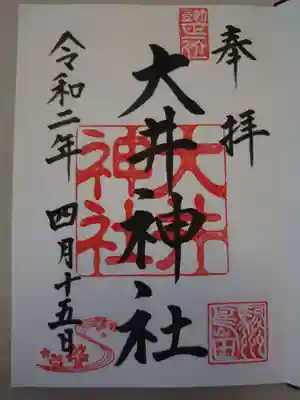 奉拝
大井神社
大井
神社
令和二年 四月十五日